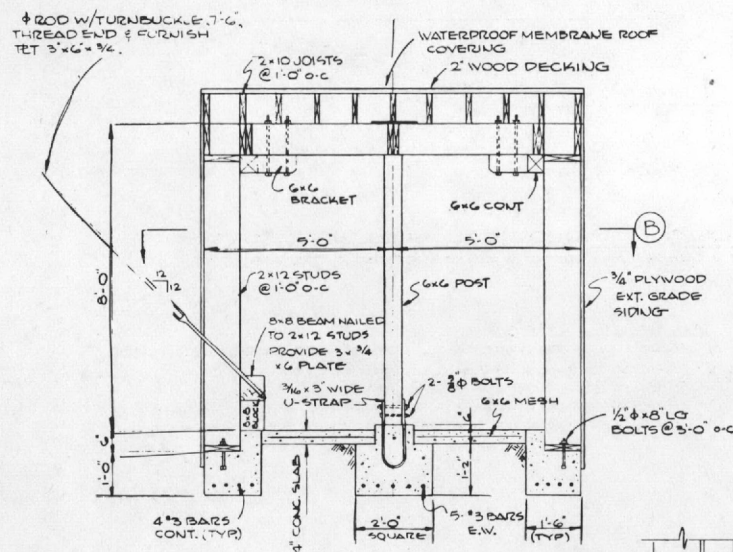 φ ROD W/TURNBUCKLE, 7'-6",
THREAD END & FURNISH
3"x6"x3/4
WATERPROOF MEMBRANE ROOF
COVERING
2x10 JOISTS
@ 1'-0" O-C
2" WOOD DECKING
6x6
BRACKET
6x6 CONT
B
5'-0"
5'-0"
8'-0"
12
12
2x12 STUDS
@ 1'-0" O-C
6x6 POST
3/4" PLYWOOD
EXT. GRADE
SIDING
8x8 BEAM NAILED
TO 2x12 STUDS
PROVIDE 3x3/4
x6 PLATE
3/16 x 3" WIDE
U-STRAP
2-5/8" φ BOLTS
6x6 MESH
8x8
BLOCK
1/2" φ x 8" LG
BOLTS @ 3'-0" O-C
6"
6"
1'-0"
1'-2"
4" CONC. SLAB
4 #3 BARS
CONT. (TYP.)
2'-0"
SQUARE
5-#3 BARS
E.W.
1'-6"
(TYP)